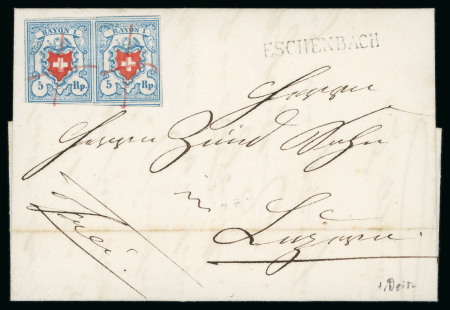 RAYON I RAYON I
5 Rp. 5 Rp.
ESCHENBACH
Herren
Herren Zünd Sohn
in
Luzern.
franco.